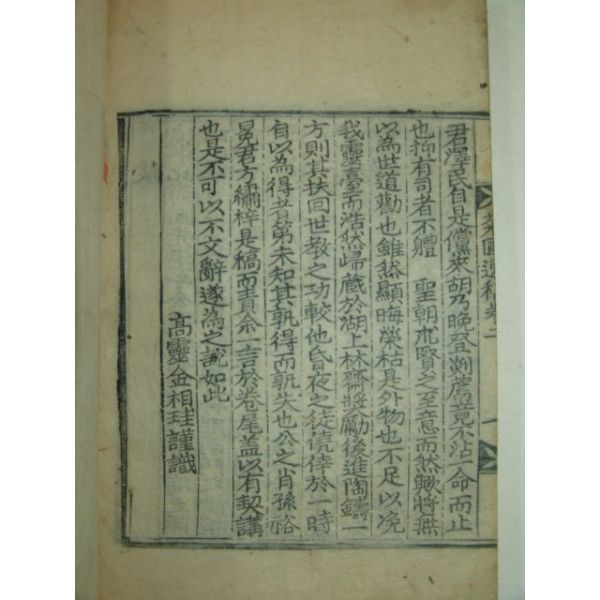 君澤民自是儻來胡乃晚登剡薦竟不沾一命而止
也抑有司者不軆 聖朝求賢之至意而然歟將無
以為世道勸也雖然顯晦榮枯是外物也不足以浼
我靈臺而浩然歸藏於湖上林齋奬勵後進陶鑄一
方則其扶回世教之功較他昏夜之徒僥倖於一時
自以為得者第未知其孰得而孰失也公之肖孫裕
冕君方繡梓是稿而責余一言於卷尾盖以有契講
也是不可以不文辭遂為之識如此
高靈金相珪謹識
逸稿卷二